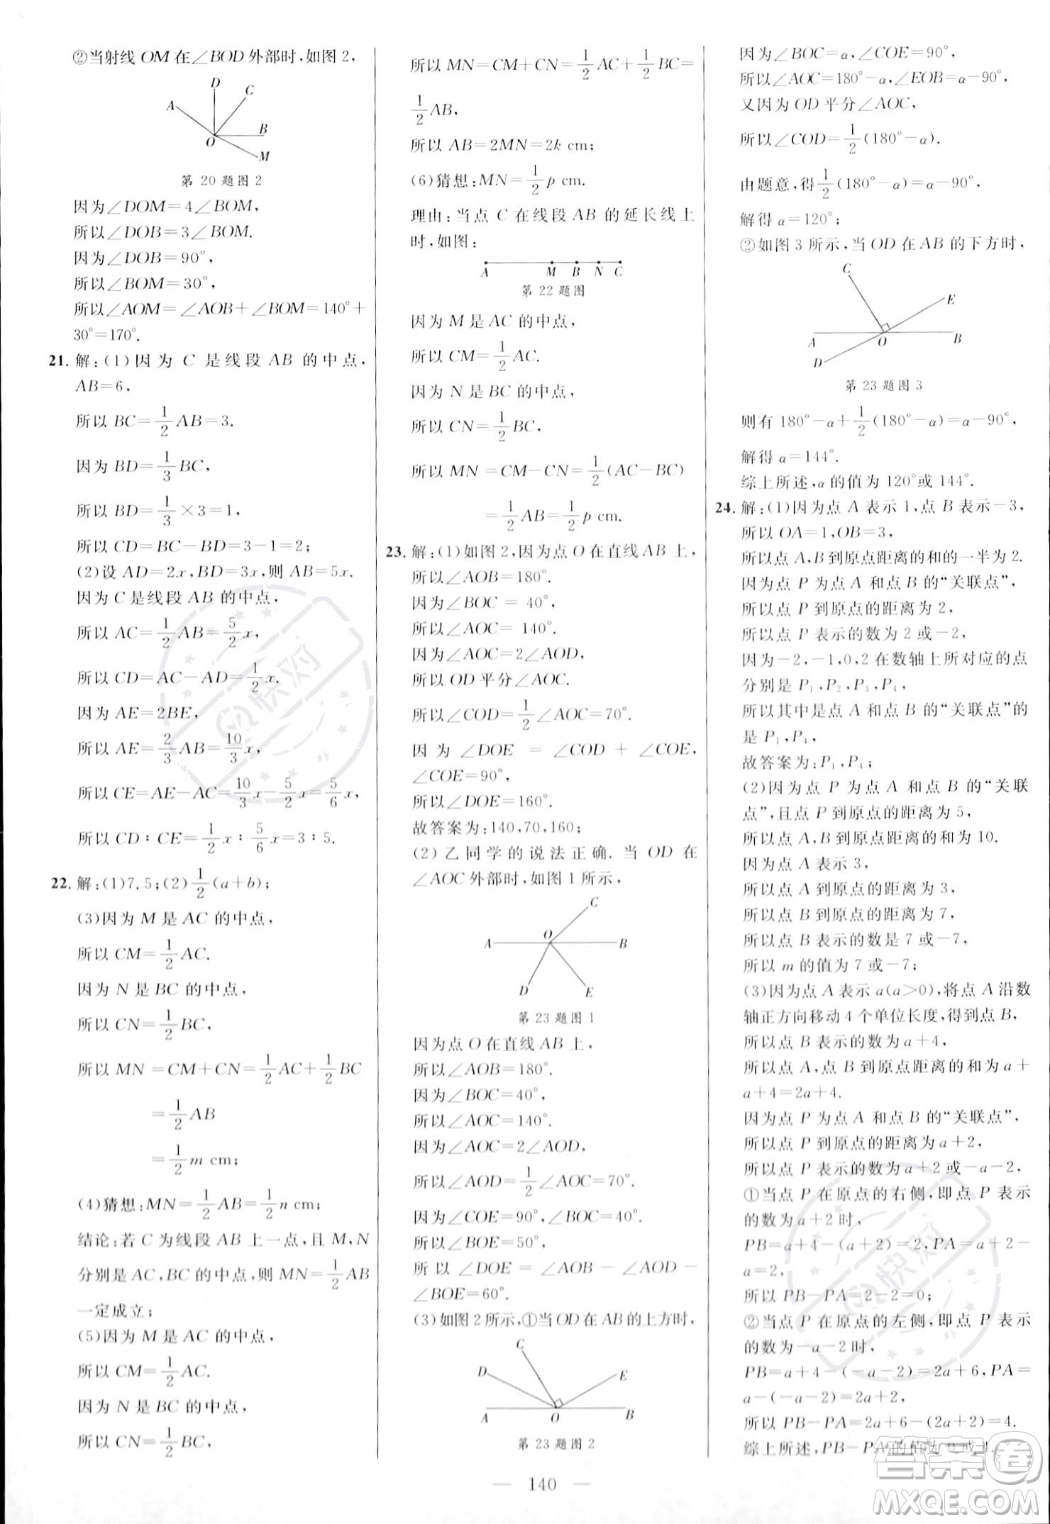 ②当射线 OM 在∠BOD 外部时,如图 2,
A D C B O M
第 20 题图 2
因为∠DOM=4∠BOM,
所以∠DOB=3∠BOM.
因为∠DOB=90°,
所以∠BOM=30°,
所以∠AOM=∠AOB+∠BOM=140°+
30°=170°.
21. 解:(1)因为 C 是线段 AB 的中点,
AB=6,
所以 BC=1/2 AB=3.
因为 BD=1/3 BC,
所以 BD=1/3×3=1,
所以 CD=BC-BD=3-1=2;
(2)设 AD=2x,BD=3x,则 AB=5x.
因为 C 是线段 AB 的中点,
所以 AC=1/2 AB=5/2 x,
所以 CD=AC-AD=1/2 x.
因为 AE=2BE,
所以 AE=2/3 AB=10/3 x,
所以 CE=AE-AC=10/3 x-5/2 x=5/6 x,
所以 CD∶CE=1/2 x∶5/6 x=3∶5.
22. 解:(1)7.5;(2)1/2(a+b);
(3)因为 M 是 AC 的中点,
所以 CM=1/2 AC.
因为 N 是 BC 的中点,
所以 CN=1/2 BC,
所以 MN=CM+CN=1/2 AC+1/2 BC
=1/2 AB
=1/2 m cm;
(4)猜想:MN=1/2 AB=1/2 n cm.
结论:若 C 为线段 AB 上一点,且 M,N
分别是 AC,BC 的中点,则 MN=1/2 AB
一定成立;
(5)因为 M 是 AC 的中点,
所以 CM=1/2 AC.
因为 N 是 BC 的中点,
所以 CN=1/2 BC,
所以 MN=CM+CN=1/2 AC+1/2 BC=
1/2 AB.
所以 AB=2MN=2k cm;
(6)猜想:MN=1/2 p cm.
理由:当点 C 在线段 AB 的延长线上
时,如图:
A M B N C
第 22 题图
因为 M 是 AC 的中点,
所以 CM=1/2 AC.
因为 N 是 BC 的中点,
所以 CN=1/2 BC,
所以 MN=CM-CN=1/2(AC-BC)
=1/2 AB=1/2 p cm.
23. 解:(1)如图 2,因为点 O 在直线 AB 上,
所以∠AOB=180°.
因为∠BOC=40°,
所以∠AOC=140°.
因为∠AOC=2∠AOD,
所以 OD 平分∠AOC.
所以∠COD=1/2∠AOC=70°.
因为∠DOE=∠COD+∠COE,
∠COE=90°,
所以∠DOE=160°.
故答案为:140,70,160;
(2)乙同学的说法正确.当 OD 在
∠AOC 外部时,如图 1 所示,
C A O B D E
第 23 题图 1
因为点 O 在直线 AB 上,
所以∠AOB=180°.
因为∠BOC=40°,
所以∠AOC=140°.
因为∠AOC=2∠AOD,
所以∠AOD=1/2∠AOC=70°.
因为∠COE=90°,∠BOC=40°,
所以∠BOE=50°,
所以∠DOE=180°-∠AOD-
∠BOE=60°.
(3)如图 2 所示,①当 OD 在 AB 的上方时,
C D E A O B
第 23 题图 2
因为∠BOC=α,∠COE=90°,
所以∠AOC=180°-α,∠EOB=α-90°,
又因为 OD 平分∠AOC,
所以∠COD=1/2(180°-α),
由题意,得1/2(180°-α)=α-90°,
解得 α=120°;
②如图 3 所示,当 OD 在 AB 的下方时,
C E A O B D
第 23 题图 3
则有 180°-α+1/2(180°-α)=α-90°,
解得 α=144°.
综上所述,α 的值为 120°或 144°.
24. 解:(1)因为点 A 表示 1,点 B 表示-3,
所以 OA=1,OB=3,
所以点 A,B 到原点距离的和的一半为 2.
因为点 P 为点 A 和点 B 的“关联点”,
所以点 P 到原点的距离为 2,
所以点 P 表示的数为 2 或-2.
因为-2,-1,0,2 在数轴上所对应的点
分别是 P₁,P₂,P₃,P₄,
所以其中是点 A 和点 B 的“关联点”的
是 P₁,P₄.
故答案为:P₁,P₄;
(2)因为点 P 为点 A 和点 B 的“关联
点”,且点 P 到原点的距离为 5,
所以点 A,B 到原点的距离的和为 10.
因为点 A 表示 3,
所以点 A 到原点的距离为 3,
所以点 B 到原点的距离为 7,
所以点 B 表示的数是 7 或-7,
所以 m 的值为 7 或-7;
(3)因为点 A 表示 a(a>0),将点 A 沿数
轴正方向移动 4 个单位长度,得到点 B,
所以点 B 表示的数为 a+4,
所以点 A,点 B 到原点的距离的和为 a+
a+4=2a+4.
因为点 P 为点 A 和点 B 的“关联点”,
所以点 P 到原点的距离为 a+2,
所以点 P 表示的数为 a+2 或-a-2.
①当点 P 在原点的右侧,即点 P 表示
的数为 a+2 时,
PB=a+4-(a+2)=2,PA=a+2-
a=2,
所以 PB-PA=2-2=0;
②当点 P 在原点的左侧,即点 P 表示
的数为-a-2 时,
PB=a+4-(-a-2)=2a+6,PA=
a-(-a-2)=2a+2,
所以 PB-PA=2a+6-(2a+2)=4.
综上所述,PB-PA 的值为 0 或 4.
140
快对
快对
答案圈
MXQE.COM